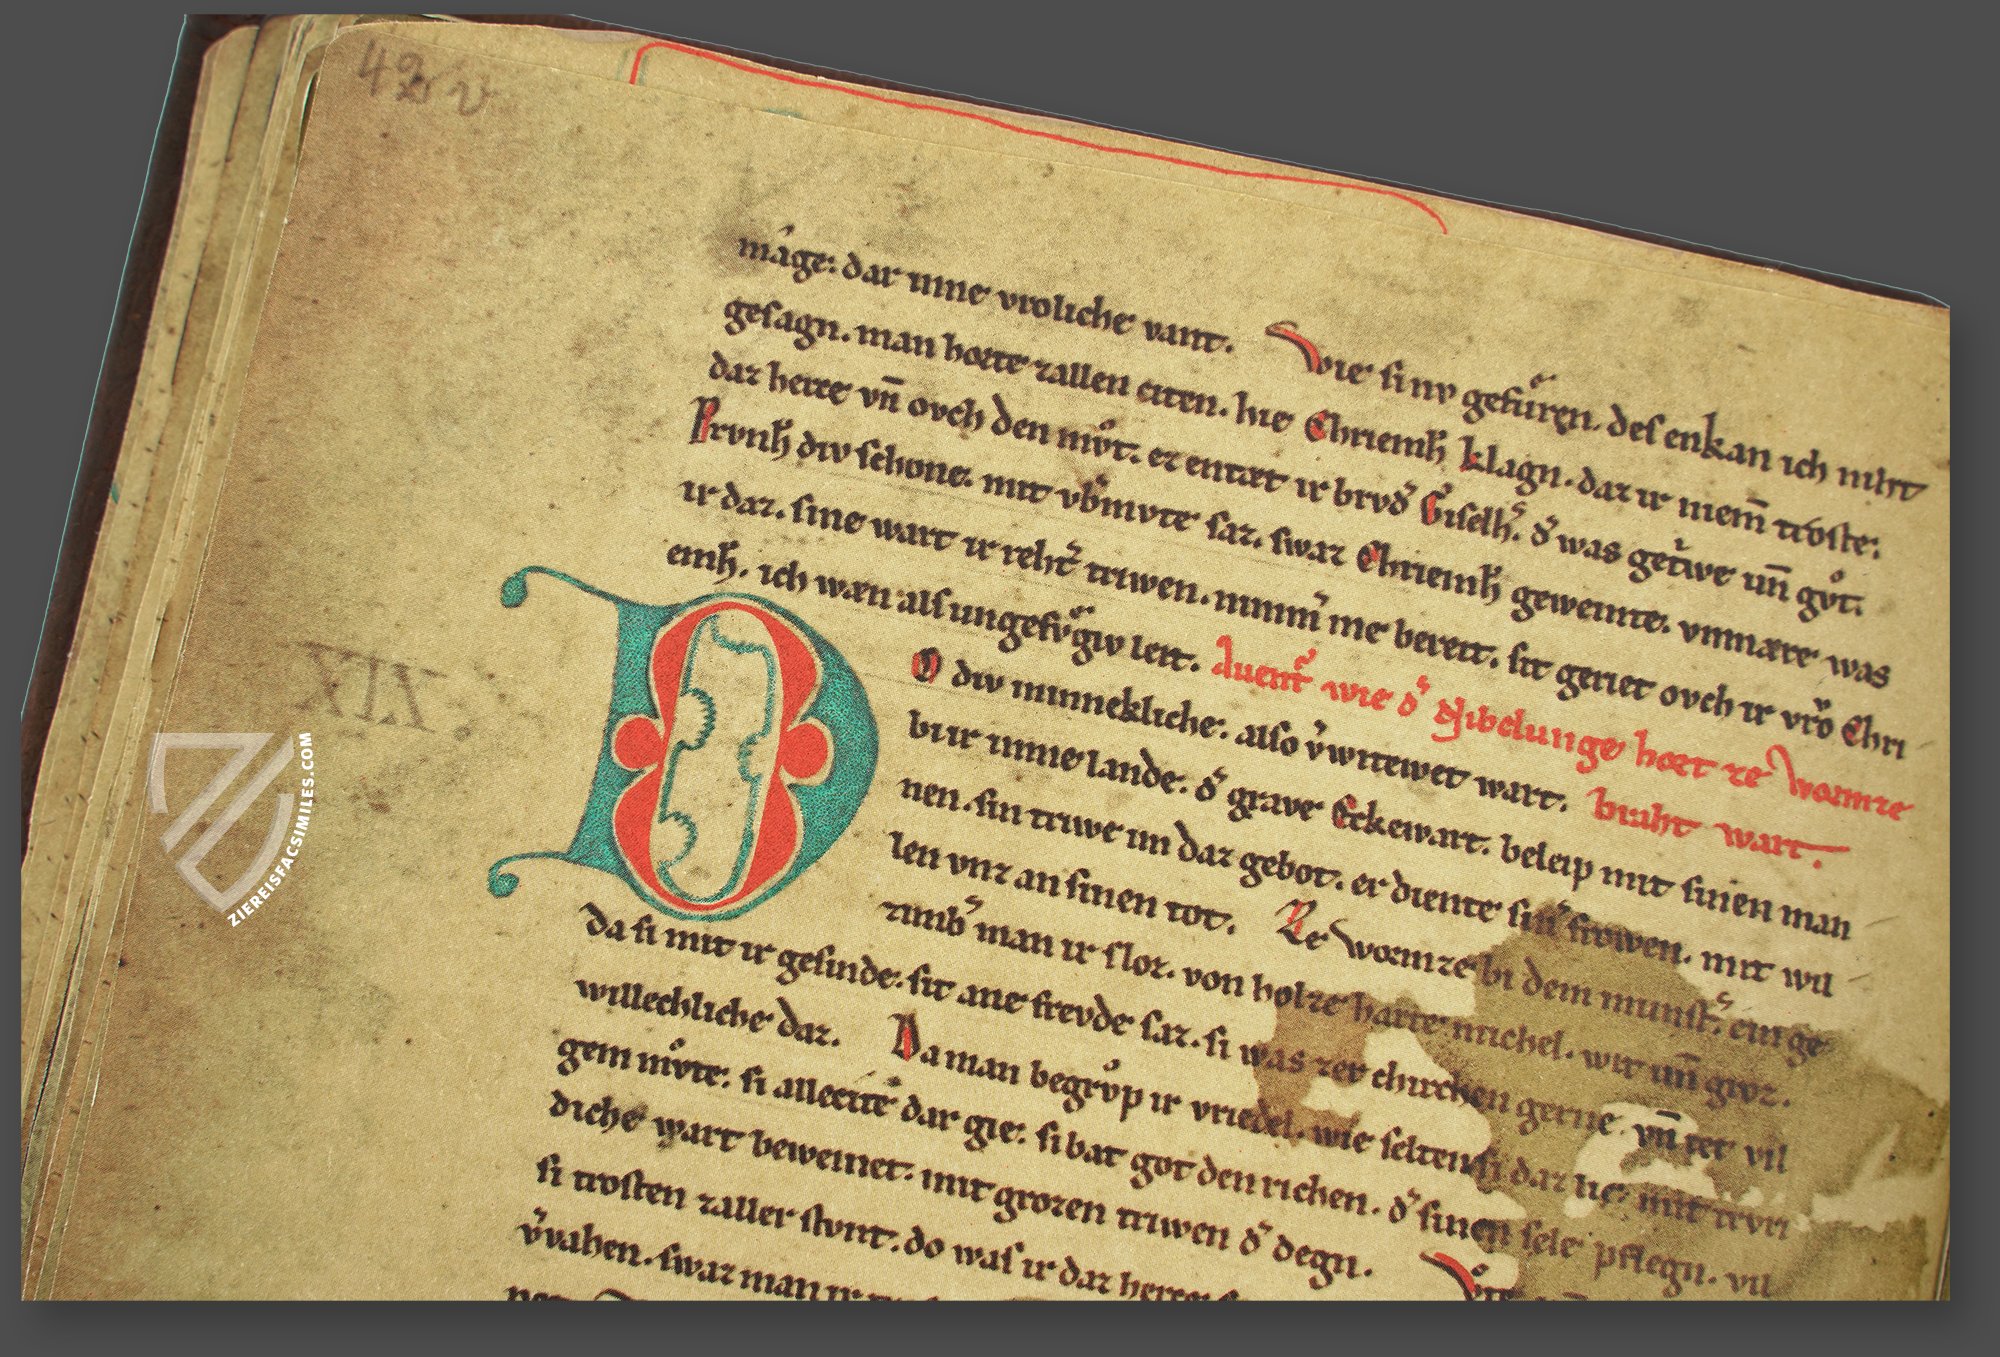 42 v
mâge: dar inne vroliche vant. Wie si nv gefuͤren. deſ enkan ich niht
geſagn. man horte zallen citen. hie Chriemh̄ klagn. daz ir niem̄ troſte:
daz herce vn̄ ovch den mvͦt. ez entæt ir brvd̓ Giſelh̓. d̓ was getriwe un̄ gvͦt.
Prvnh̄ div ſchone. mit vb̓mvte ſaz. ſwaz Chriemh̄ geweinte. vnmære was
ir daz. ſine wart ir reht̓ triwen. nimm̓ me bereit. ſit geriet ovch ir vro Chri
emh̄. ich wæn alſ ungefvͤgiv leit. Auent̓ wie d̓ Nibelunge hort ze Wormze
DO div minnekliche. alſo v̓witewet wart. braht wart.
bi ir inme lande. d̓ grave Eckewart. beleip mit ſinen man
nen. ſin triwe im daz gebot. er diente ſin̓ frowen. mit wil
len vnz an ſinen tot. Ze Wormze bi dem munſt̓. ein ge
zimb̓ man ir ſloz. von holze harte michel. wit un̄ groz.
da ſi mit ir geſinde. ſit ane frevde ſaz. ſi was zer chirchen gerne. vn̄ tet vil
willechliche daz. Da man begrvͦp ir vriedel. wie ſelten ſi daz lie: mit trvri
gem mvͦte. ſi allecite dar gie. ſi bat got den richen. d̓ ſinen ſele pflegn. vil
diche wart beweinet. mit grozen triwen d̓ degn.
ſi troſten zaller ſtvnt. do waſ ir daz herce
v̓vahen. ſwaz man ir
ZIEREISFACSIMILES.COM